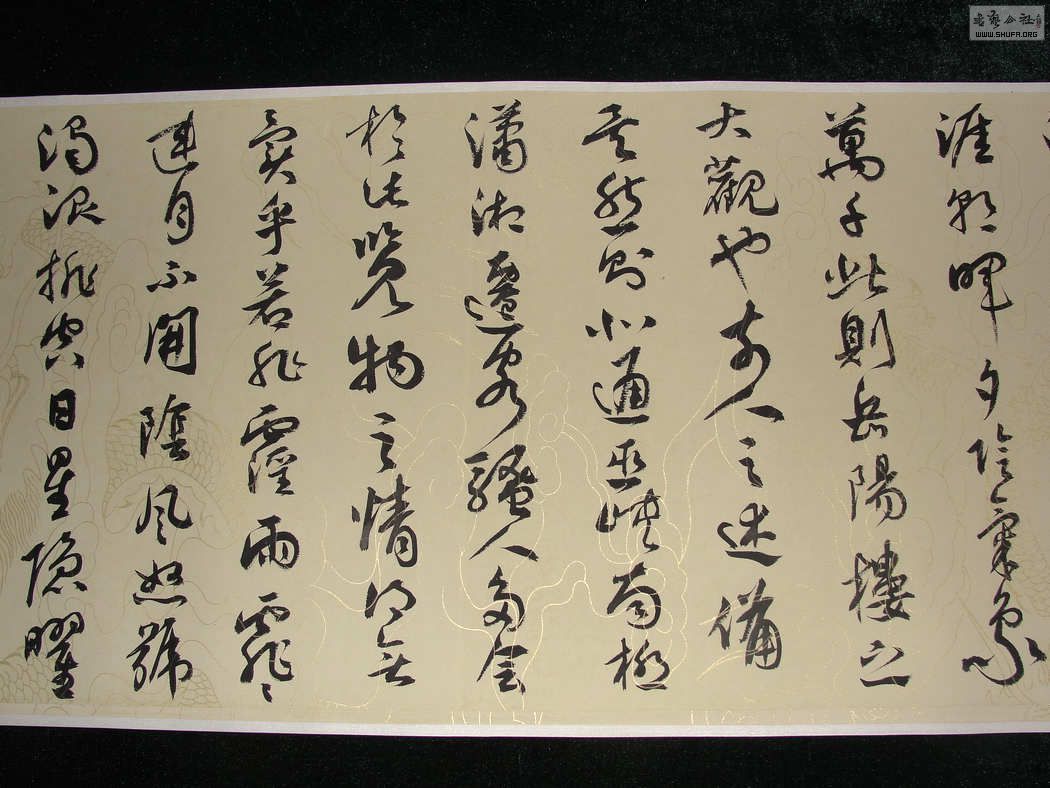 涯朝暉夕陰氣象
萬千此則岳陽樓之
大觀也前人之述備
矣然則北通巫峽南極
瀟湘遷客騷人多會
於此覽物之情得無
異乎若非霪雨霏霏
連月不開陰風怒號
濁浪排空日星隱曜
書藝公社
WWW.SHUFA.ORG